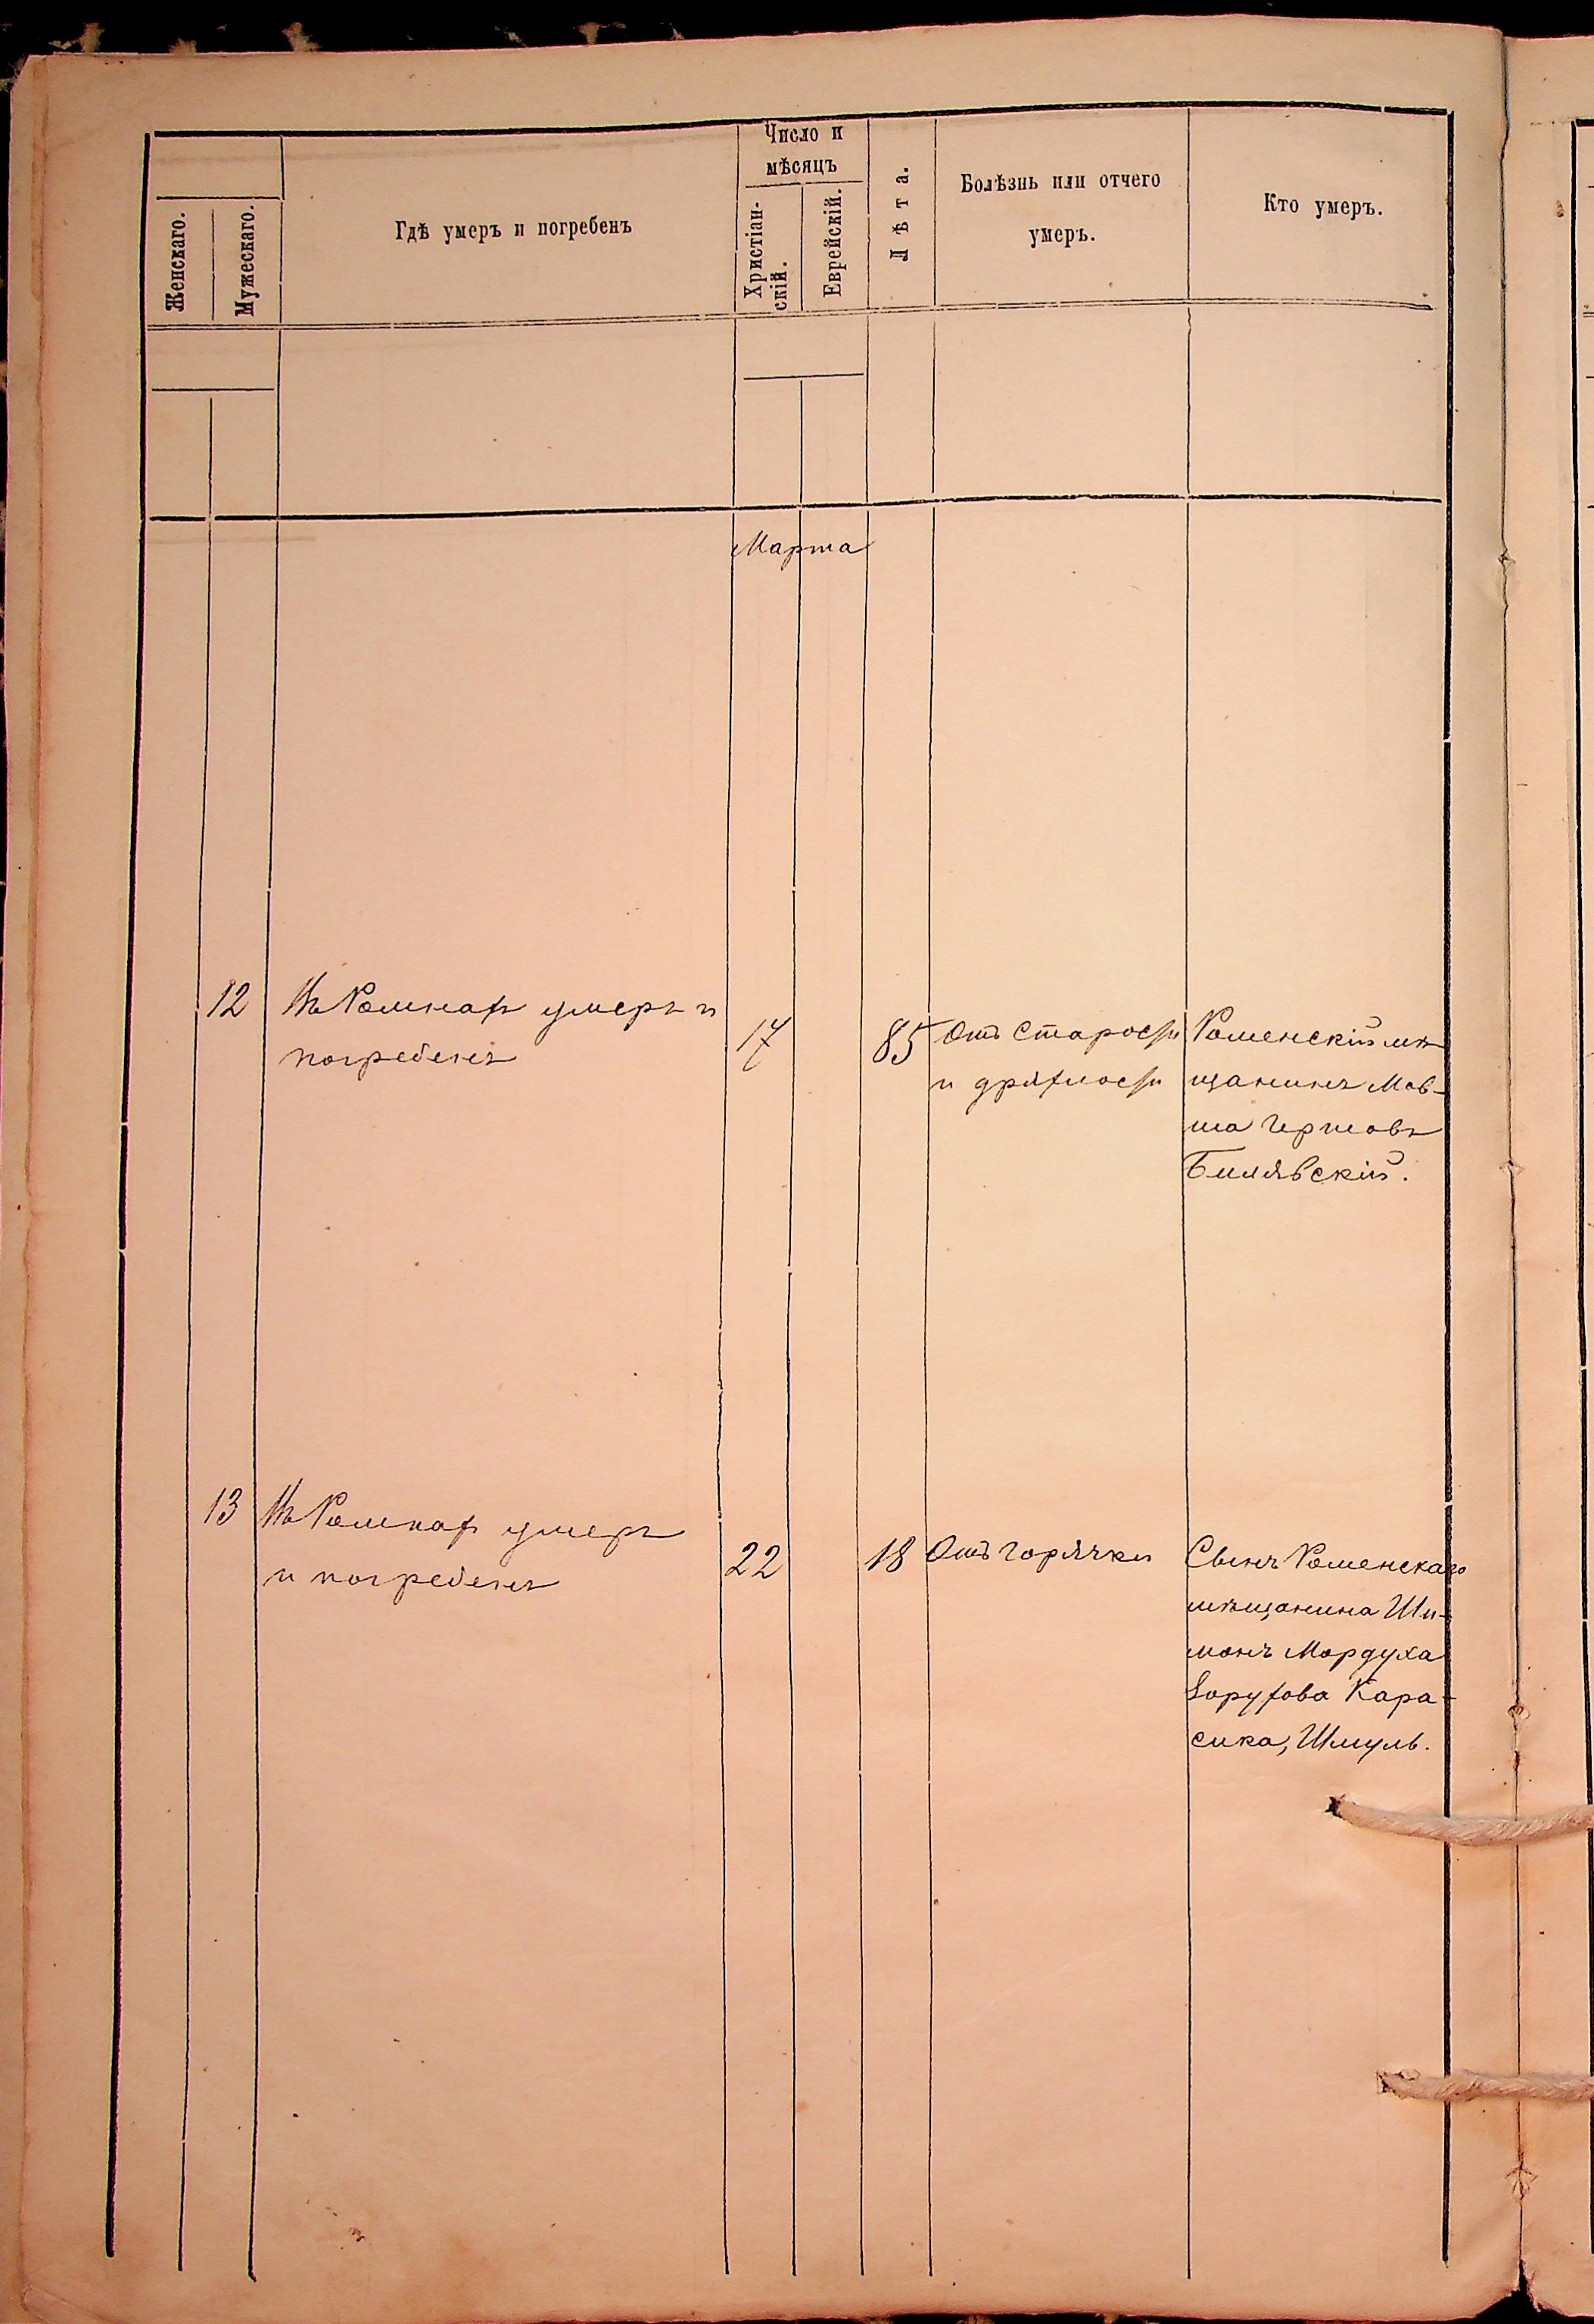 Женскаго.
Мужескаго.
Гдѣ умеръ и погребенъ
Число и
мѣсяцъ
Христіан-
скій.
Еврейскій.
Лѣта.
Болѣзнь или отчего
умеръ.
Кто умеръ.
Марта
12
Въ Ромнах умеръ и
погребенъ
17
85
Отъ старости
и дряхлости
Роменскій мѣ
щанинъ Мов-
ша
Билявскій.
13
Въ Ромнах умеръ
и погребенъ
22
18
Отъ горячки
Сынъ Роменскаго
мѣщанина Ши-
монъ Мордуха
Борухова Кара-
сика, Шмуль.